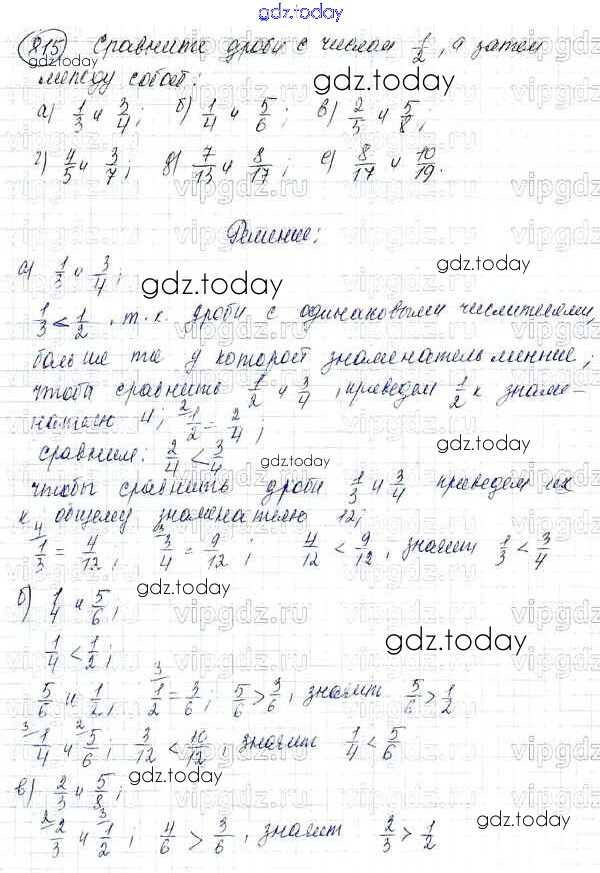 gdz.today
815) Сравните дроби с числом 1/2, а затем
между собой:
gdz.today
а) 1/3 и 3/4; б) 1/4 и 5/6; в) 2/3 и 5/8;
г) 4/5 и 3/7; д) 7/13 и 8/17; е) 8/17 и 10/19.
Решение:
а) 1/3 и 3/4;
gdz.today
gdz.today
1/3 < 1/2, т.к. дроби с одинаковыми числителями,
больше та у которой знаменатель меньше;
чтобы сравнить 1/2 и 3/4, приведем 1/2 к знаме-
нателю 4; 2 1/2 = 2/4;
gdz.today
сравним: 2/4 < 3/4
gdz.today
чтобы сравнить дроби 1/3 и 3/4 приведем их
к общему знаменателю 12;
4 1/3 = 4/12; 3 3/4 = 9/12; 4/12 < 9/12, значит 1/3 < 3/4
gdz.today
б) 1/4 и 5/6;
1/4 < 1/2;
gdz.today
5/6 и 1/2, 3 1/2 = 3/6; 5/6 > 3/6, значит 5/6 > 1/2
3 1/4 и 2 5/6; 3/12 < 10/12, значит 1/4 < 5/6
gdz.today
в) 2/3 и 5/8;
gdz.today
2 2/3 и 3 1/2; 4/6 > 3/6, значит 2/3 > 1/2
gdz.today
vipgdz.ru